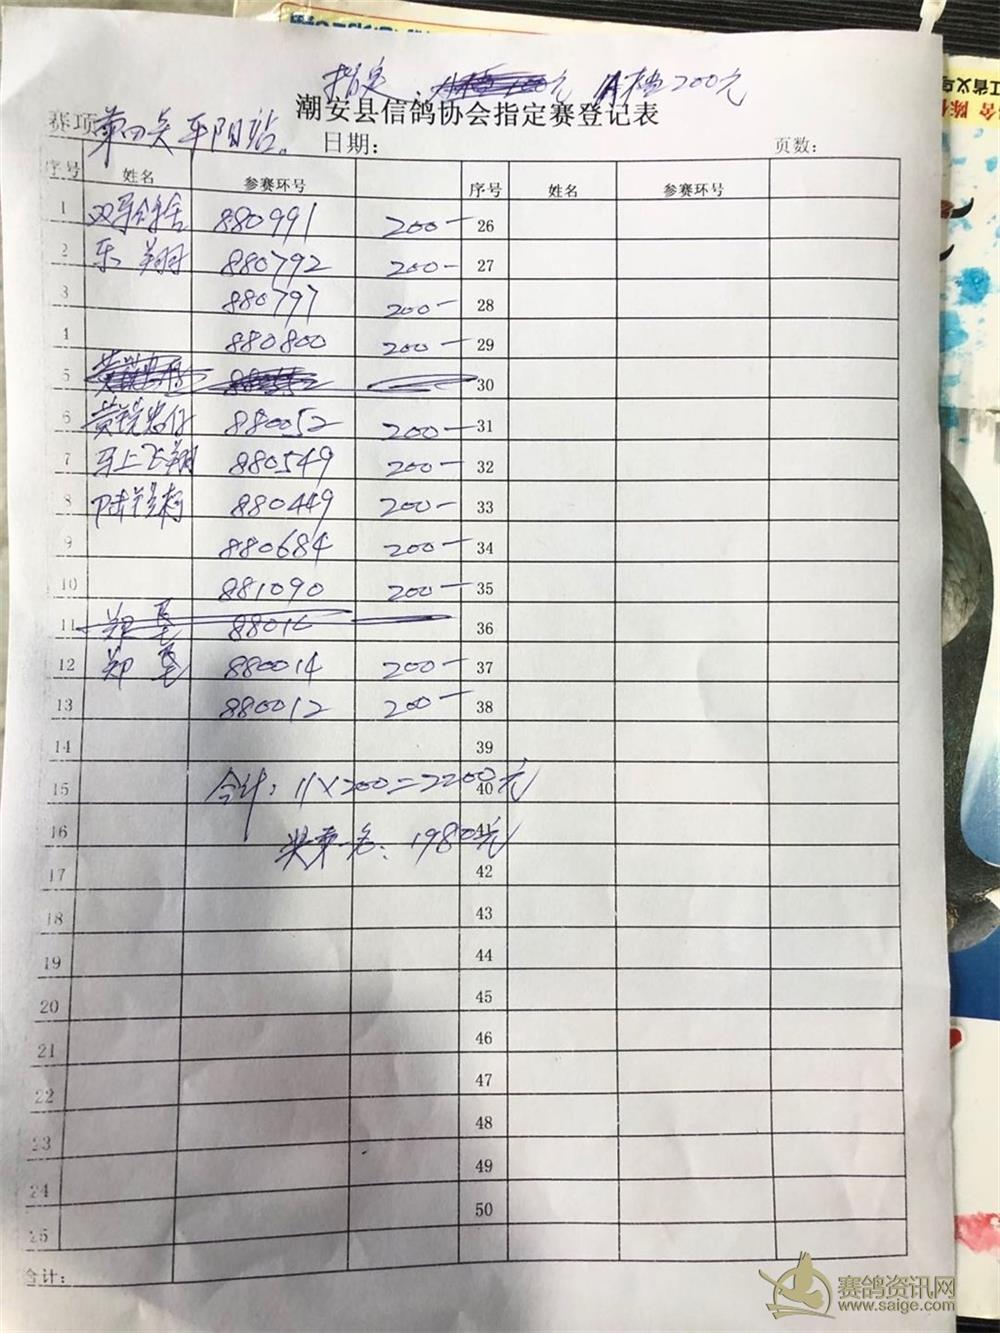 指定: 200元
潮安县信鸽协会指定赛登记表
赛项 第四关平阳站。 日期: 页数:
序号 姓名 参赛环号 序号 姓名 参赛环号
1 双军鸽舍 880991 200- 26
2 乐翔 880792 200- 27
3 880797 200- 28
4 880800 200- 29
5 30
6 黄锐忠仔 880052 200- 31
7 马上飞翔 880549 200- 32
8 880449 200- 33
9 880684 200- 34
10 881090 200- 35
11 郑 8801 36
12 郑 880014 200- 37
13 880012 200- 38
14 39
15 合计: 11×200=2200元 40
16 奖第一名: 1980元 41
17 42
18 43
19 44
20 45
21 46
22 47
23 48
24 49
25 50
合计:
赛鸽资讯网
www.saige.com